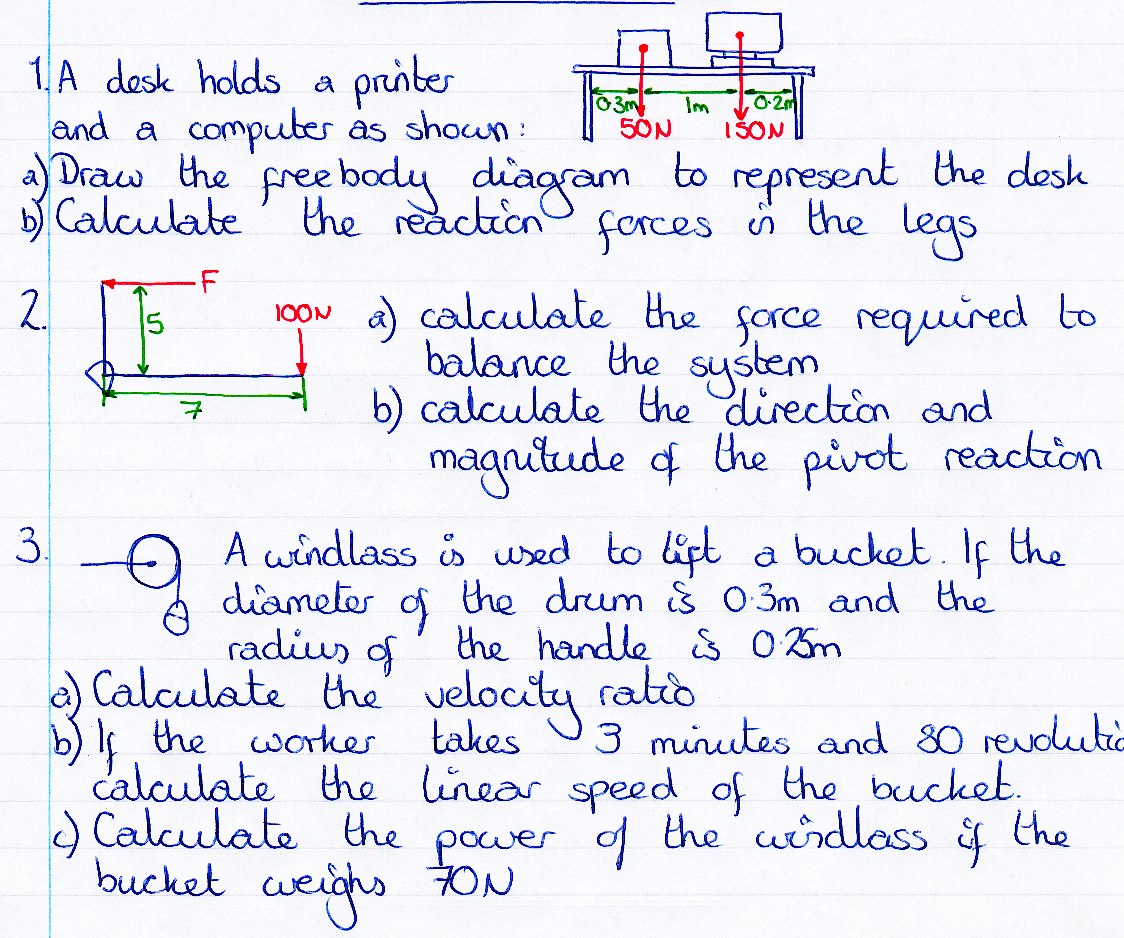 1. A desk holds a printer
and a computer as shown:
0.3m 1m 0.2m
50N 150N
a) Draw the freebody diagram to represent the desk
b) Calculate the reaction forces in the legs
2.
F
5
100N
7
a) calculate the force required to
balance the system
b) calculate the direction and
magnitude of the pivot reaction
3. A windlass is used to lift a bucket. If the
diameter of the drum is 0.3m and the
radius of the handle is 0.25m
a) Calculate the velocity ratio
b) If the worker takes 3 minutes and 80 revolutio
calculate the linear speed of the bucket.
c) Calculate the power of the windlass if the
bucket weighs 70N